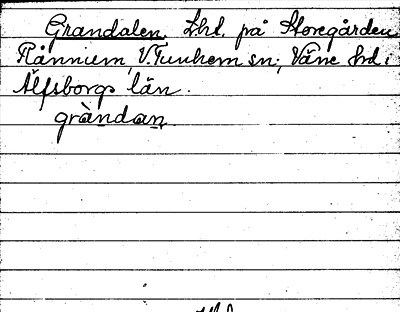 Grandalen. Lht. på Storegården
Flånnum, V. Tunhem sn; Väne hd i
Älfsborgs län.
gràndan.